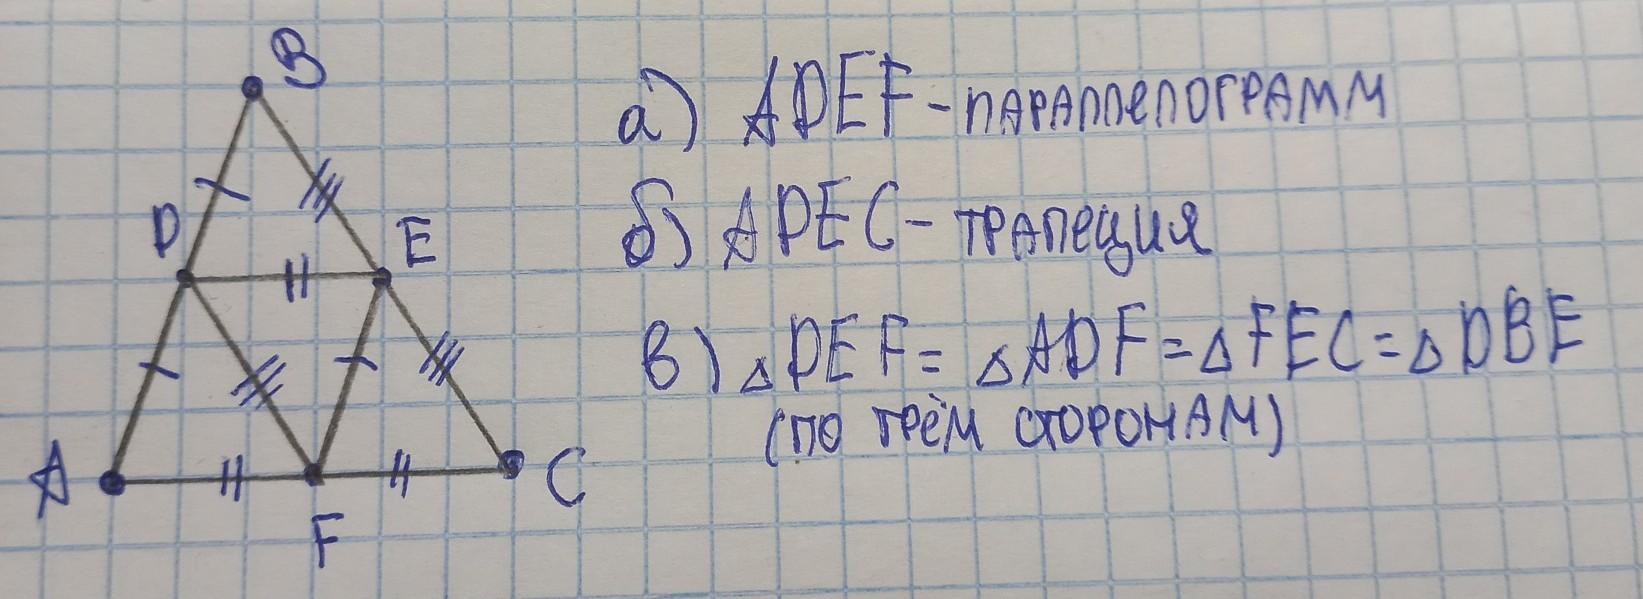 B
D
E
A
F
C
а) ADEF - параллелограмм
б) ADEC - трапеция
в) △DEF = △ADF = △FEC = △DBE
(по трём сторонам)